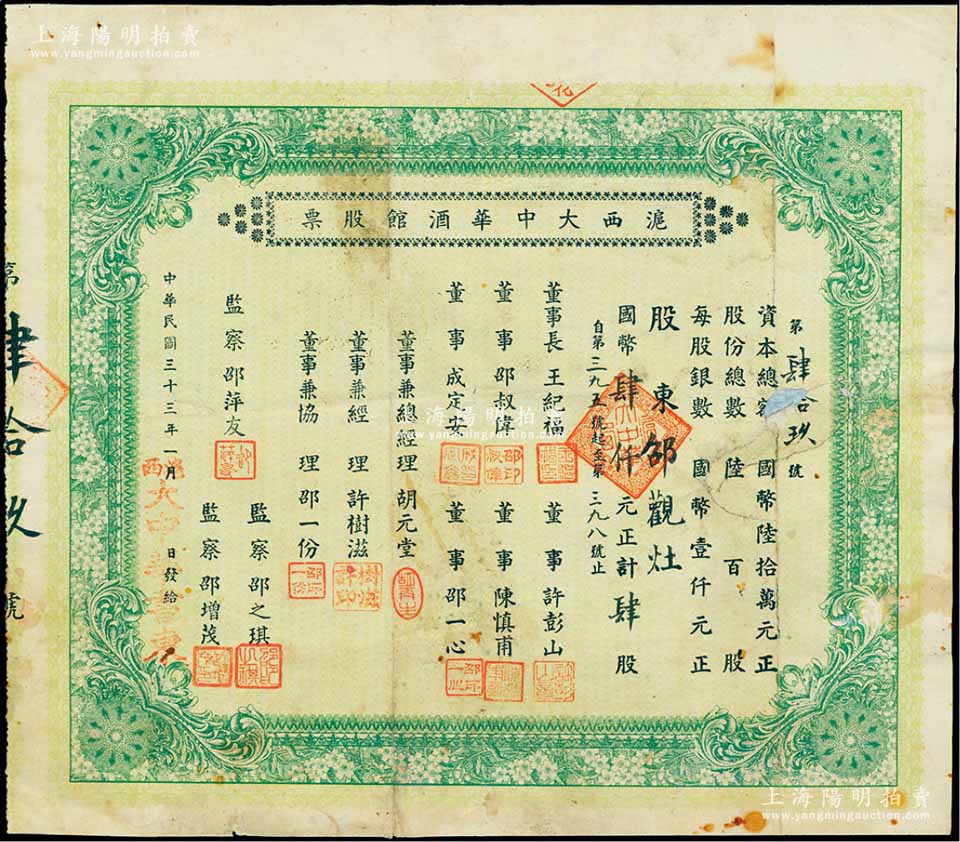 上海陽明拍賣
www.yangmingauction.com
滬西大中華酒館股票
第肆拾玖號
資本總額國幣陸拾萬元正
股份總數陸百股
每股銀數國幣壹仟元正
股東邵觀灶
國幣肆仟元正計肆股
自第三九五號起至第三九八號止
董事長王紀福 董事許彭山
董事邵叔偉 董事陳慎甫
董事成定安 董事邵一心
董事兼總經理胡元堂
董事兼經理許樹滋
董事兼協理邵一份
監察邵之琪
監察邵萍友 監察邵增茂
中華民國三十三年一月 日發給
第肆拾玖號
上海陽明拍賣
www.yangmingauction.com
上海陽明拍賣
www.yangmingauction.com